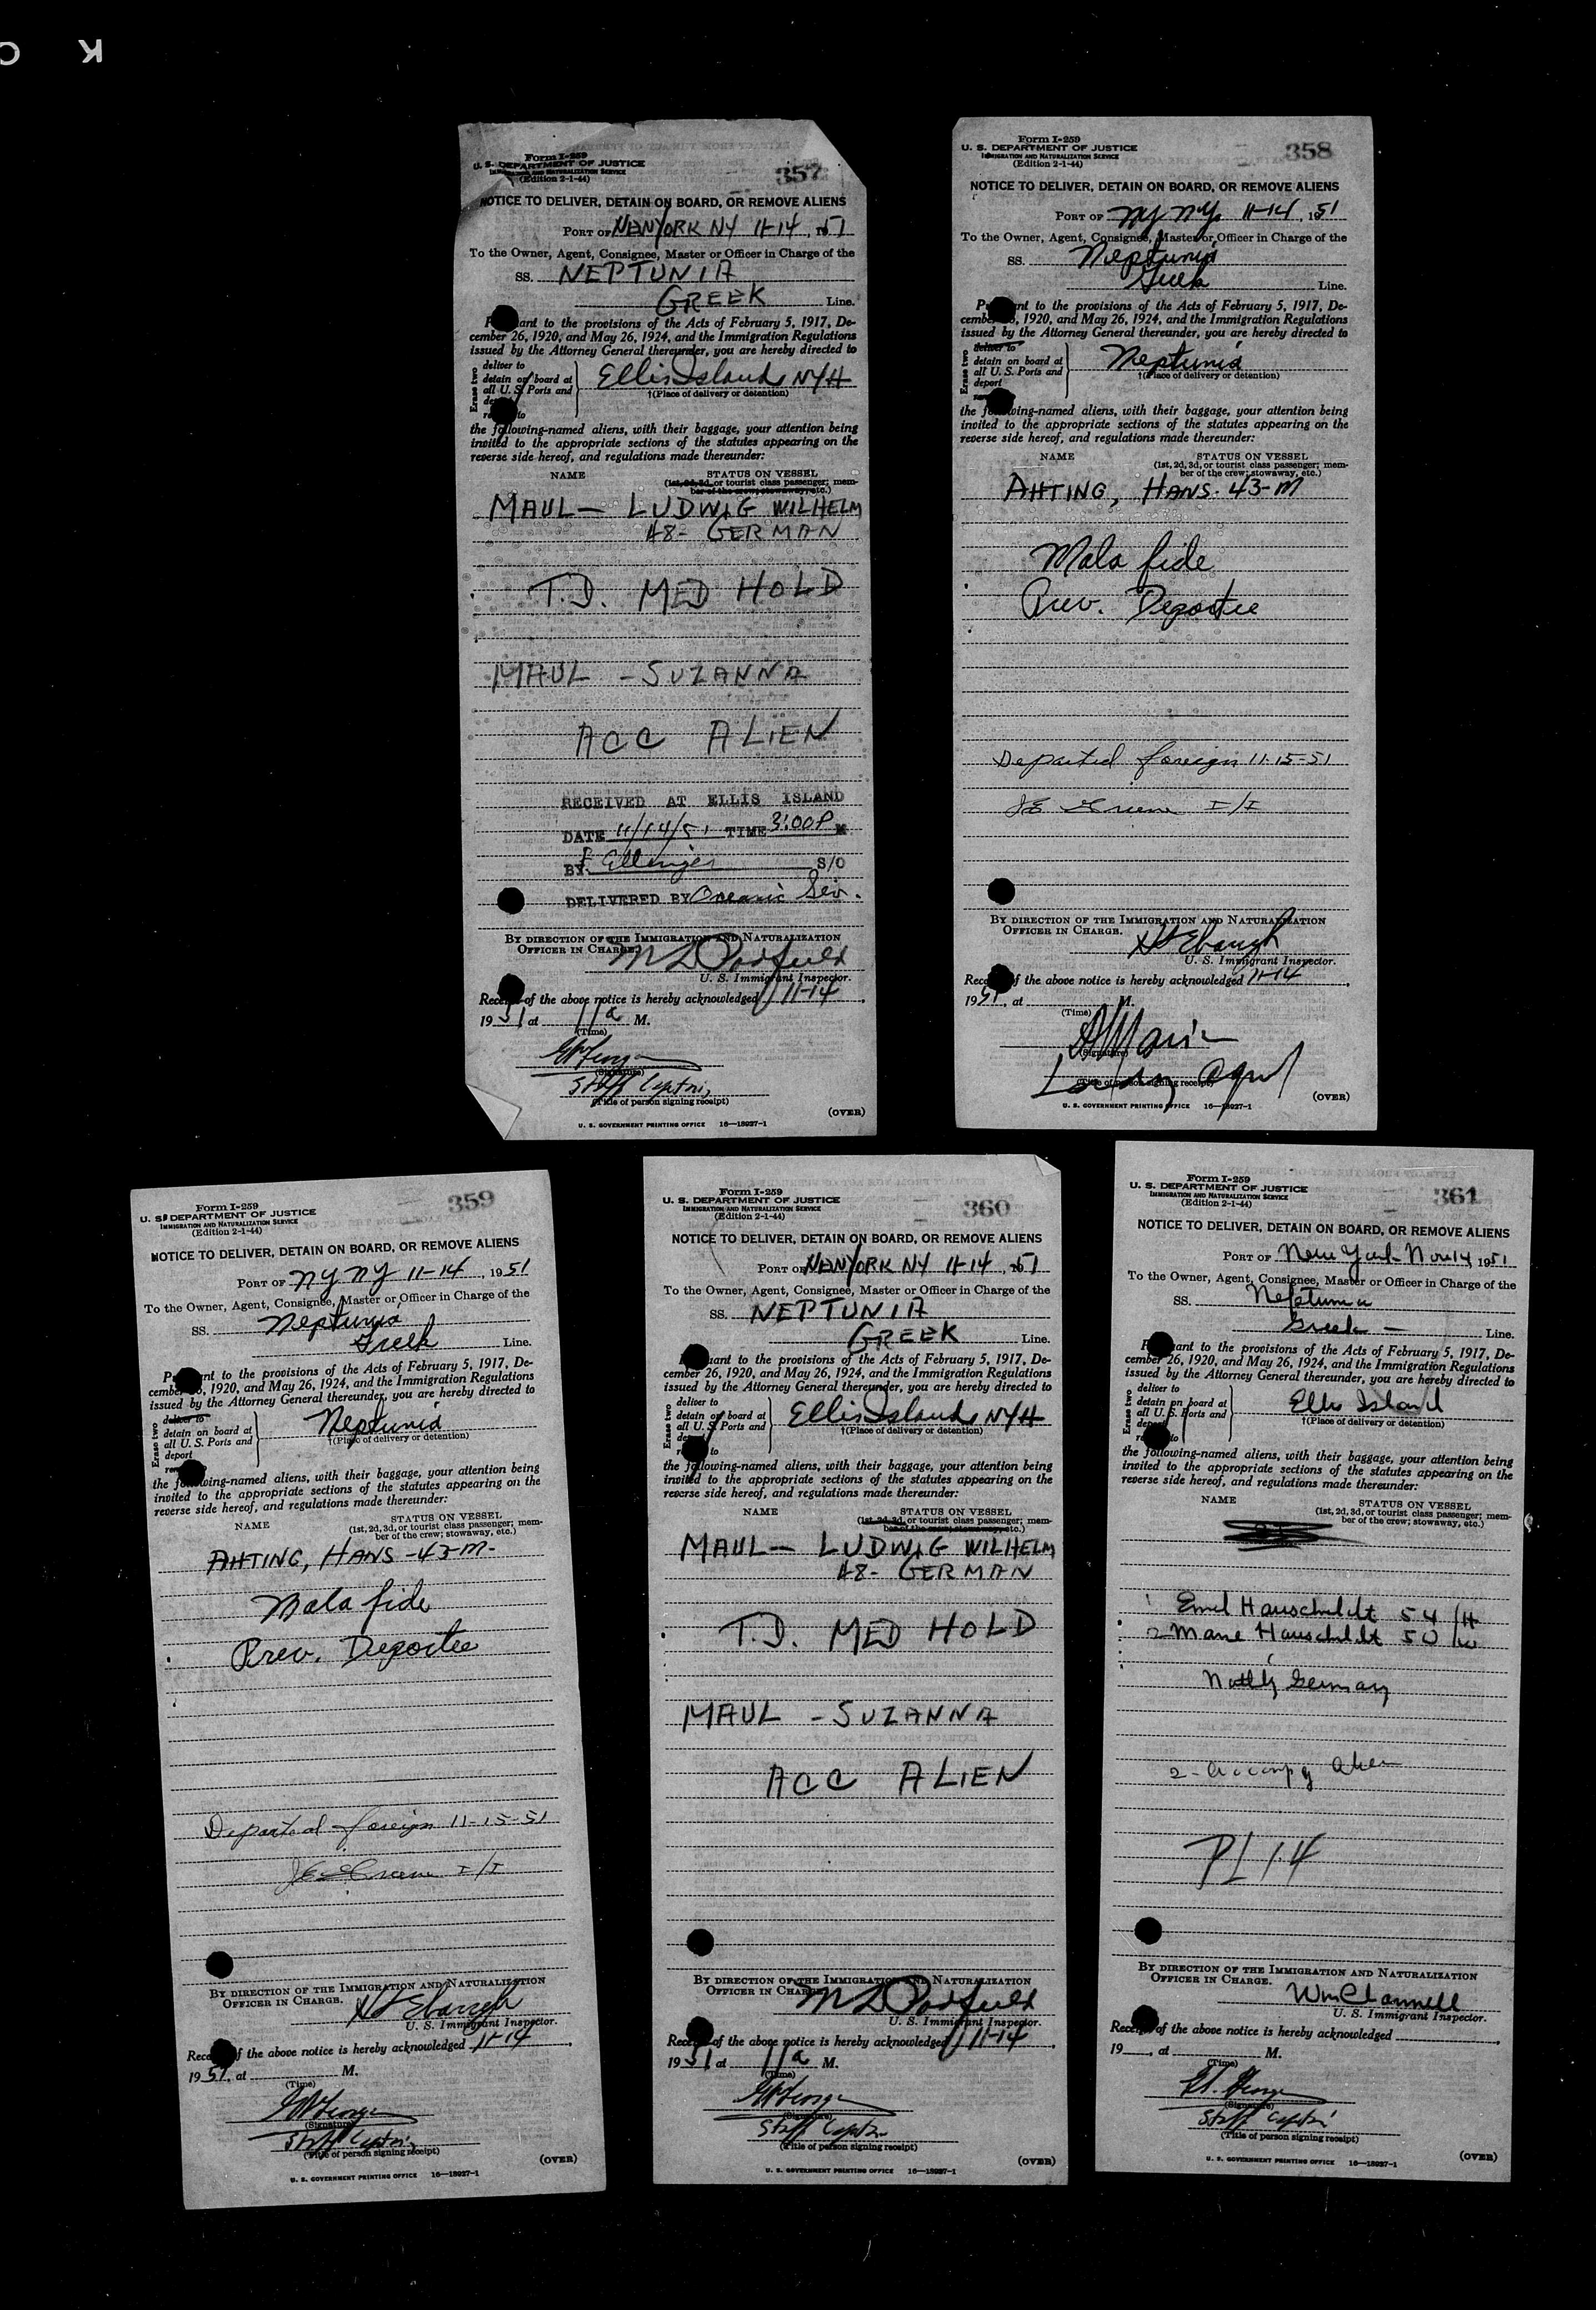 K
Form I-259
U. S. DEPARTMENT OF JUSTICE
IMMIGRATION AND NATURALIZATION SERVICE
(Edition 2-1-44)
357
NOTICE TO DELIVER, DETAIN ON BOARD, OR REMOVE ALIENS
PORT OF NEW YORK NY 11-14, 1951
To the Owner, Agent, Consignee, Master or Officer in Charge of the
SS. NEPTUNIA
GREEK Line.
Pursuant to the provisions of the Acts of February 5, 1917, De-
cember 26, 1920, and May 26, 1924, and the Immigration Regulations
issued by the Attorney General thereunder, you are hereby directed to
Erase two
deliver to
detain on board at
all U. S. Ports and
deport
remove to
Ellis Island, NYH
†(Place of delivery or detention)
the following-named aliens, with their baggage, your attention being
invited to the appropriate sections of the statutes appearing on the
reverse side hereof, and regulations made thereunder:
NAME STATUS ON VESSEL
(1st, 2d, 3d, or tourist class passenger; mem-
ber of the crew; stowaway, etc.)
MAUL — LUDWIG WILHELM
48 - GERMAN
T.D. MED HOLD
MAUL - SUZANNA
ACC ALIEN
RECEIVED AT ELLIS ISLAND
DATE 11/14/51 TIME 3:00 P M
BY Ellinger S/O
DELIVERED BY Oceanic Ser.
BY DIRECTION OF THE IMMIGRATION AND NATURALIZATION
OFFICER IN CHARGE.
U. S. Immigrant Inspector.
Receipt of the above notice is hereby acknowledged 11-14,
1951, at 11 a M.
(Time)
(Signature)
Staff Captain
(Title of person signing receipt)
(OVER)
U. S. GOVERNMENT PRINTING OFFICE 16—18927-1
Form I-259
U. S. DEPARTMENT OF JUSTICE
IMMIGRATION AND NATURALIZATION SERVICE
(Edition 2-1-44)
358
NOTICE TO DELIVER, DETAIN ON BOARD, OR REMOVE ALIENS
PORT OF NY NY 11-14, 1951
To the Owner, Agent, Consignee, Master or Officer in Charge of the
SS. Neptunia
Greek Line.
Pursuant to the provisions of the Acts of February 5, 1917, De-
cember 26, 1920, and May 26, 1924, and the Immigration Regulations
issued by the Attorney General thereunder, you are hereby directed to
Erase two
deliver to
detain on board at
all U. S. Ports and
deport
remove to
Neptunia
†(Place of delivery or detention)
the following-named aliens, with their baggage, your attention being
invited to the appropriate sections of the statutes appearing on the
reverse side hereof, and regulations made thereunder:
NAME STATUS ON VESSEL
(1st, 2d, 3d, or tourist class passenger; mem-
ber of the crew; stowaway, etc.)
AHTING, HANS. 43-M
Mala fide
Prev. Deportee
Departed foreign 11-15-51
JE Greene I/I
BY DIRECTION OF THE IMMIGRATION AND NATURALIZATION
OFFICER IN CHARGE.
Ebaugh
U. S. Immigrant Inspector.
Receipt of the above notice is hereby acknowledged 11-14,
1951, at M.
(Time)
(Signature)
(Title of person signing receipt)
(OVER)
U. S. GOVERNMENT PRINTING OFFICE 16—18927-1
Form I-259
U. S. DEPARTMENT OF JUSTICE
IMMIGRATION AND NATURALIZATION SERVICE
(Edition 2-1-44)
359
NOTICE TO DELIVER, DETAIN ON BOARD, OR REMOVE ALIENS
PORT OF NY NY 11-14, 1951
To the Owner, Agent, Consignee, Master or Officer in Charge of the
SS. Neptunia
Greek Line.
Pursuant to the provisions of the Acts of February 5, 1917, De-
cember 26, 1920, and May 26, 1924, and the Immigration Regulations
issued by the Attorney General thereunder, you are hereby directed to
Erase two
deliver to
detain on board at
all U. S. Ports and
deport
remove to
Neptunia
†(Place of delivery or detention)
the following-named aliens, with their baggage, your attention being
invited to the appropriate sections of the statutes appearing on the
reverse side hereof, and regulations made thereunder:
NAME STATUS ON VESSEL
(1st, 2d, 3d, or tourist class passenger; mem-
ber of the crew; stowaway, etc.)
AHTING, HANS - 43-M-
Mala fide
Prev. Deportee
Departed foreign 11-15-51
JE Greene I/I
BY DIRECTION OF THE IMMIGRATION AND NATURALIZATION
OFFICER IN CHARGE.
Ebaugh
U. S. Immigrant Inspector.
Receipt of the above notice is hereby acknowledged 11-14,
1951, at M.
(Time)
(Signature)
Staff Captain
(Title of person signing receipt)
(OVER)
U. S. GOVERNMENT PRINTING OFFICE 16—18927-1
Form I-259
U. S. DEPARTMENT OF JUSTICE
IMMIGRATION AND NATURALIZATION SERVICE
(Edition 2-1-44)
360
NOTICE TO DELIVER, DETAIN ON BOARD, OR REMOVE ALIENS
PORT OF NEW YORK NY 11-14, 1951
To the Owner, Agent, Consignee, Master or Officer in Charge of the
SS. NEPTUNIA
GREEK Line.
Pursuant to the provisions of the Acts of February 5, 1917, De-
cember 26, 1920, and May 26, 1924, and the Immigration Regulations
issued by the Attorney General thereunder, you are hereby directed to
Erase two
deliver to
detain on board at
all U. S. Ports and
deport
remove to
Ellis Island, NYH
†(Place of delivery or detention)
the following-named aliens, with their baggage, your attention being
invited to the appropriate sections of the statutes appearing on the
reverse side hereof, and regulations made thereunder:
NAME STATUS ON VESSEL
(1st, 2d, 3d, or tourist class passenger; mem-
ber of the crew; stowaway, etc.)
MAUL — LUDWIG WILHELM
48 - GERMAN
T.D. MED HOLD
MAUL - SUZANNA
ACC ALIEN
BY DIRECTION OF THE IMMIGRATION AND NATURALIZATION
OFFICER IN CHARGE.
U. S. Immigrant Inspector.
Receipt of the above notice is hereby acknowledged 11-14
1951, at 11 a M.
(Time)
(Signature)
Staff Captain
(Title of person signing receipt)
(OVER)
U. S. GOVERNMENT PRINTING OFFICE 16—18927-1
Form I-259
U. S. DEPARTMENT OF JUSTICE
IMMIGRATION AND NATURALIZATION SERVICE
(Edition 2-1-44)
361
NOTICE TO DELIVER, DETAIN ON BOARD, OR REMOVE ALIENS
PORT OF New York Nov 14, 1951
To the Owner, Agent, Consignee, Master or Officer in Charge of the
SS. Neptunia
Greek — Line.
Pursuant to the provisions of the Acts of February 5, 1917, De-
cember 26, 1920, and May 26, 1924, and the Immigration Regulations
issued by the Attorney General thereunder, you are hereby directed to
Erase two
deliver to
detain on board at
all U. S. Ports and
deport
remove to
Ellis Island
†(Place of delivery or detention)
the following-named aliens, with their baggage, your attention being
invited to the appropriate sections of the statutes appearing on the
reverse side hereof, and regulations made thereunder:
NAME STATUS ON VESSEL
(1st, 2d, 3d, or tourist class passenger; mem-
ber of the crew; stowaway, etc.)
1 Emil Hauschildt 54 H
2 Marie Hauschildt 50 W
Natly Germany
2 - Accompg Alien
PL 14
BY DIRECTION OF THE IMMIGRATION AND NATURALIZATION
OFFICER IN CHARGE.
U. S. Immigrant Inspector.
Receipt of the above notice is hereby acknowledged
19 , at M.
(Time)
(Signature)
Staff Captain
(Title of person signing receipt)
(OVER)
U. S. GOVERNMENT PRINTING OFFICE 16—18927-1